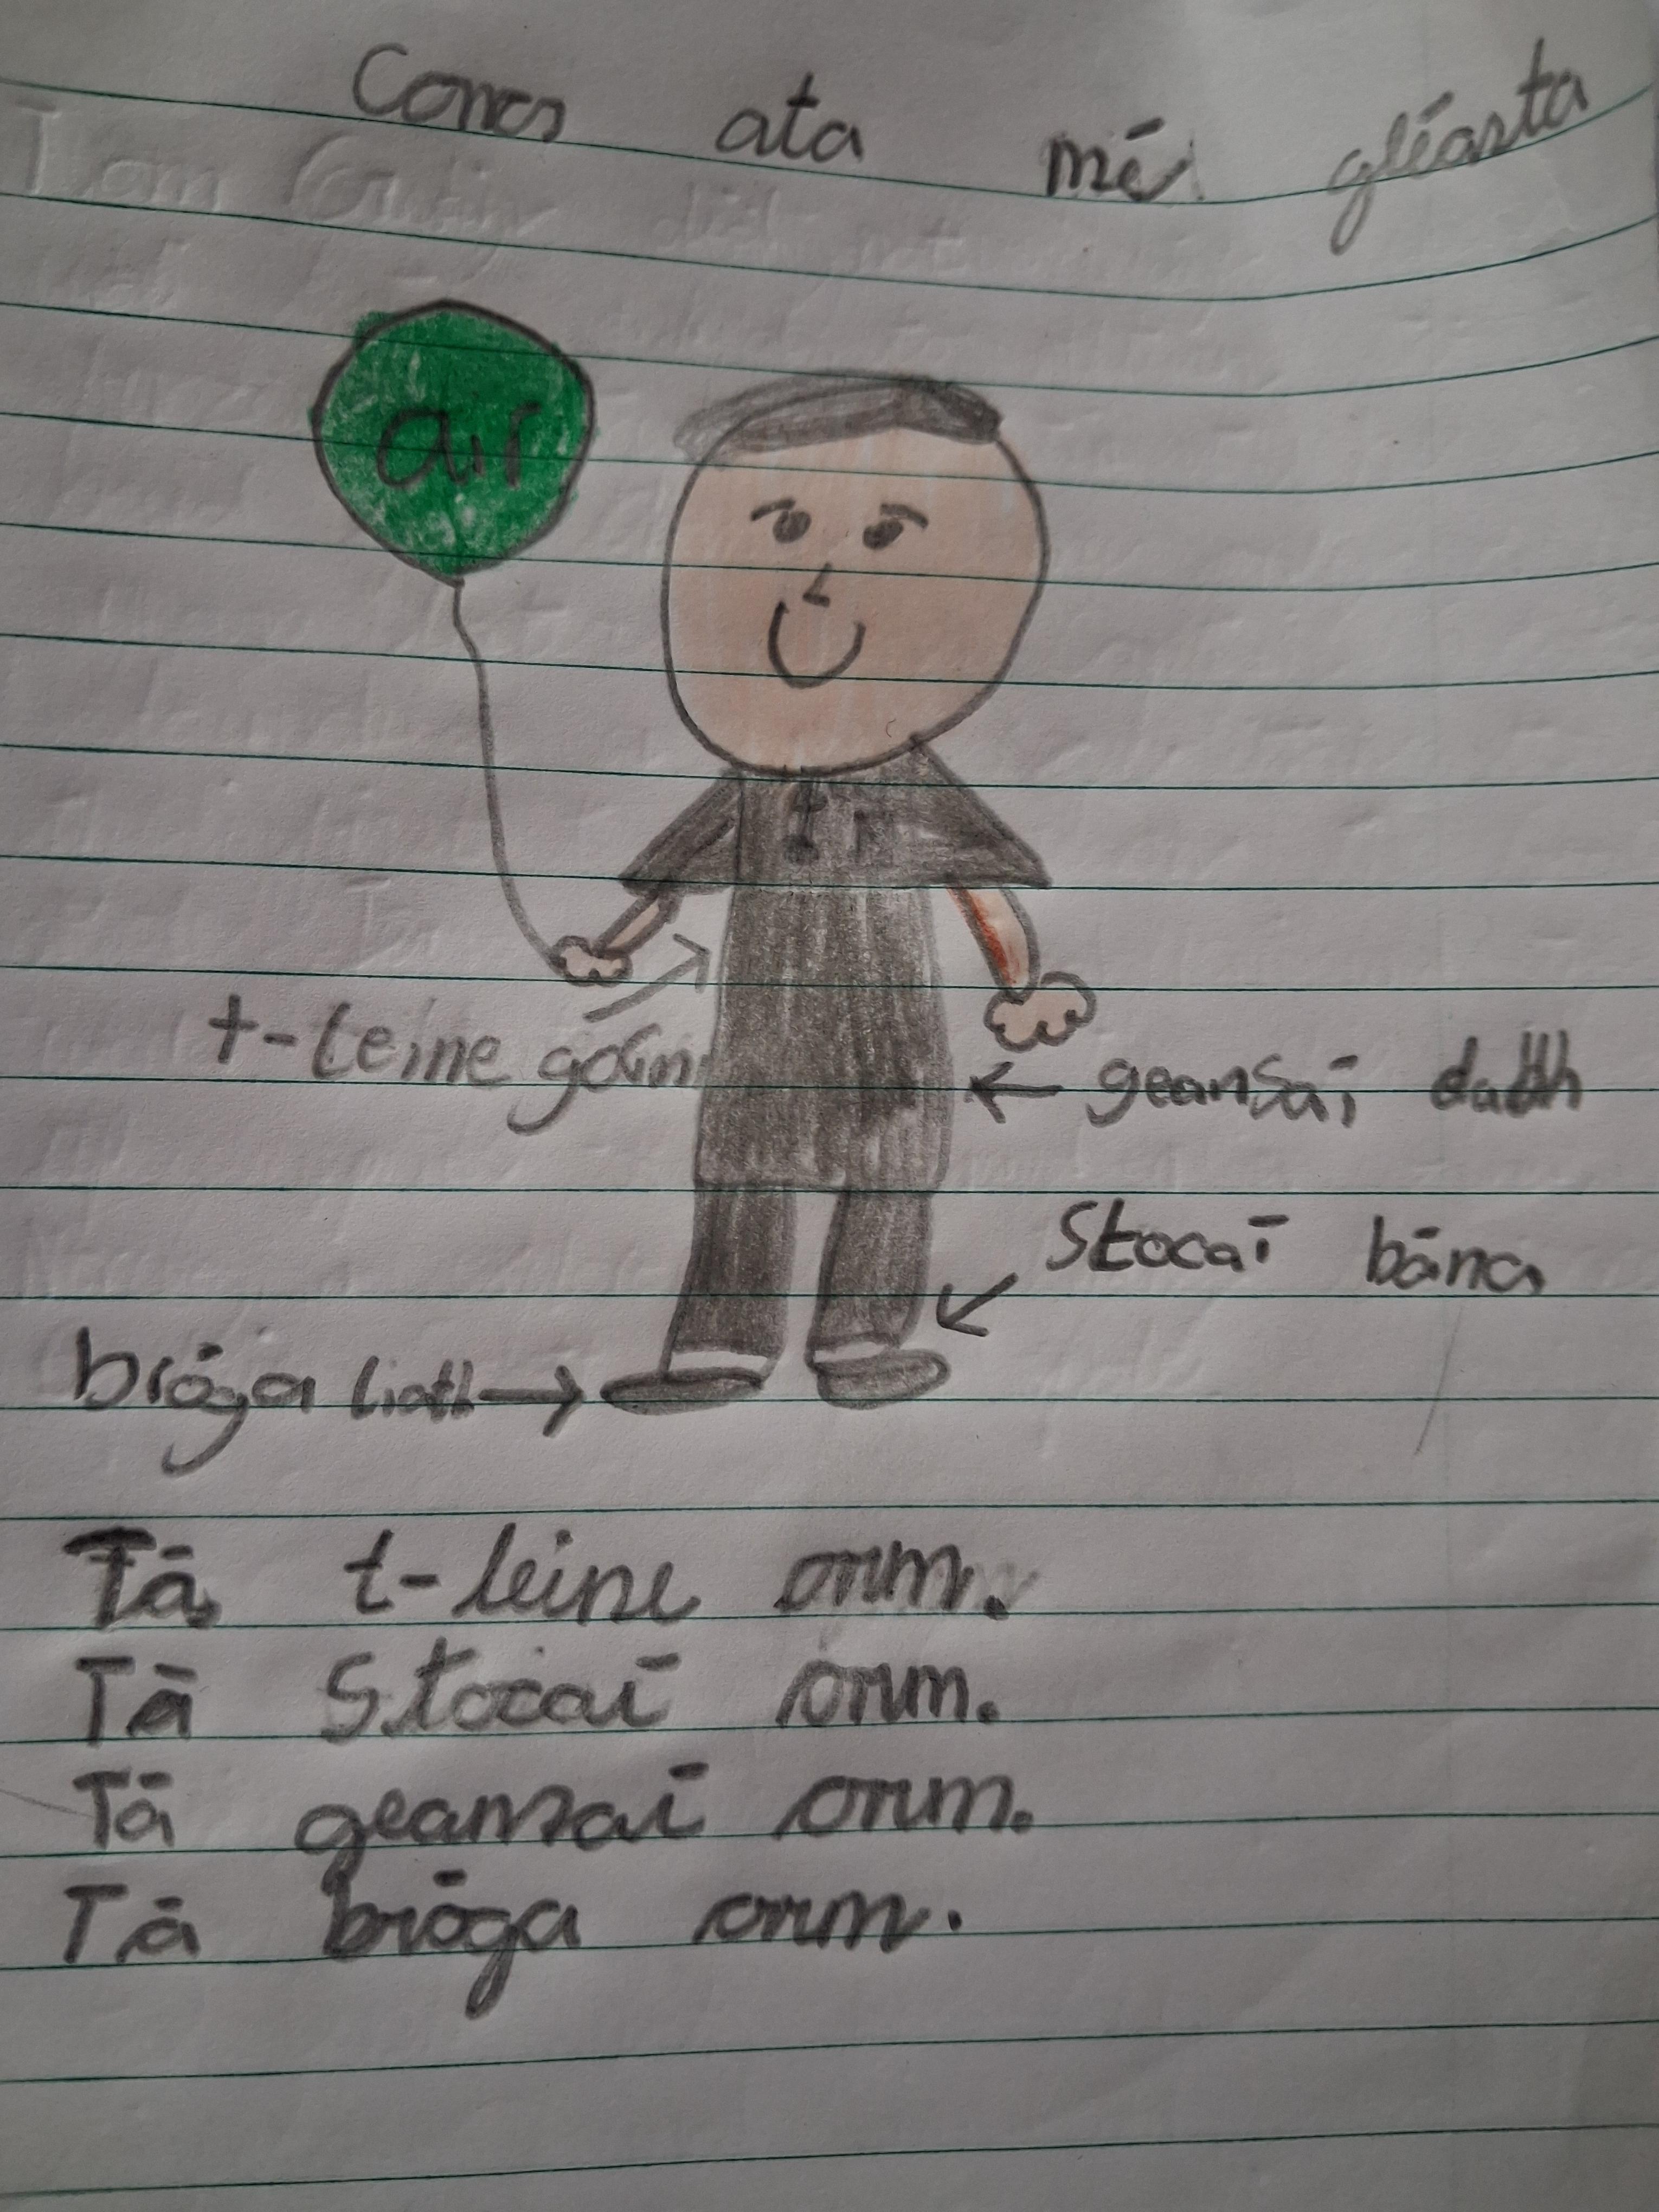 Conas ata mé gléasta
air
t-leine gorm
geansaí dubh
Stocaí bána
bróga liath
Tá t-leine orm.
Tá Stocaí orm.
Tá geansaí orm.
Tá bróga orm.